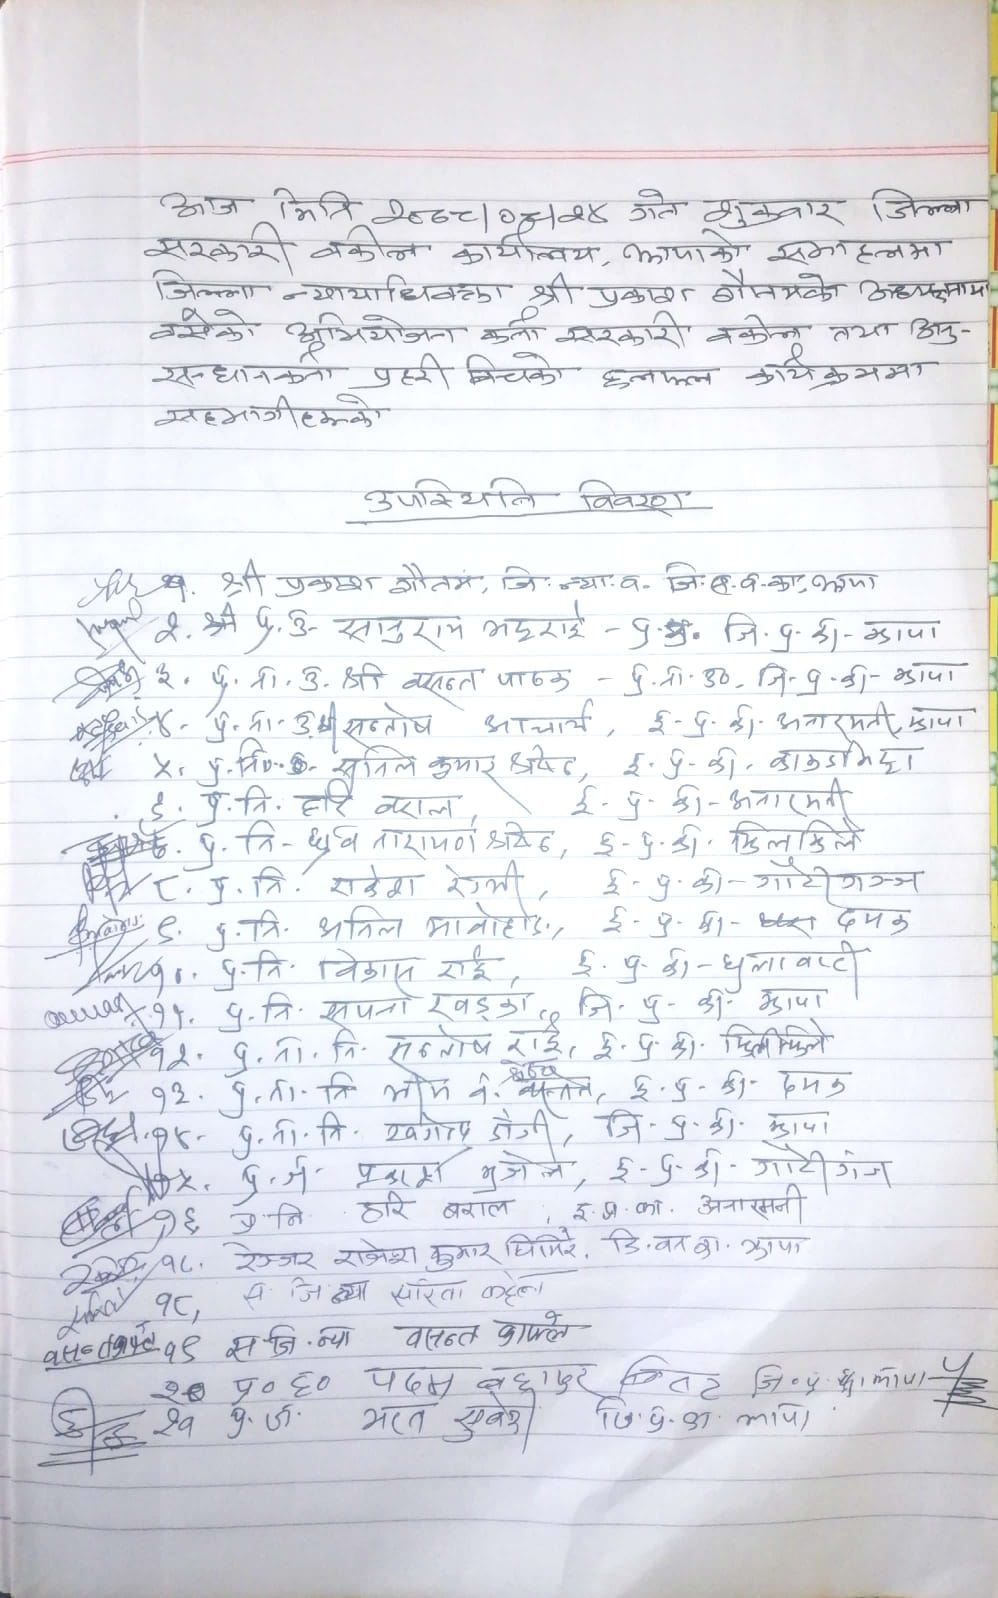 आज मिति २०७८/०४/२४ गते शुक्रवार जिल्ला
सरकारी वकील कार्यालय, झापाको सभाहलमा
जिल्ला न्यायाधिवक्ता श्री प्रकाश गौतमको अध्यक्षतामा
बसेको अभियोजन कर्ता सरकारी वकील तथा अनु-
सन्धानकर्ता प्रहरी बिचको छलफल कार्यक्रममा
सहभागीहरूको
उपस्थिति विवरण
१. श्री प्रकाश गौतम, जि. न्या. व. जि.स.व.का., झापा
२. श्री प्र.उ. सानुराम भट्टराई - प्र. जि.प्र.का- झापा
३. प्र.ना.उ. श्री वसन्त पाठक - प्र.ना.उ. जि.प्र.का- झापा
४. प्र.ना.उ. श्री सन्तोष आचार्य, ई.प्र.का. अनारमनी, झापा
५. प्र.नि. सुनिल कुमार श्रेष्ठ, ई.प्र.का. काकडभिट्टा
६. प्र.नि. हरि बराल, ई.प्र.का- अनारमनी
७. प्र.नि- ध्रुव नारायण श्रेष्ठ, ई.प्र.का. झिलझिले
८. प्र.नि. राकेश रेग्मी, ई-प्र.का- गौरीगञ्ज
९. प्र.नि. अनिल ई.प्र.का- दमक
१०. प्र.नि. विकास राई, ई.प्र.का- धुलाबारी
११. प्र.नि. सपना खड्का, जि.प्र.का- झापा
१२. प्र.ना.नि. सन्तोष राई, ई.प्र.का. झिलझिले
१३. प्र.ना.नि भीम व. ई.प्र.का- दमक
१४. प्र.ना.नि. जि.प्र.का. झापा
१५. प्र.ज. प्रकाश भुजेल, ई-प्र.का- गौरीगंज
१६ प्र.नि हरि बराल, ई.प्र.का. अनारमनी
१७. रेञ्जर राजेश कुमार घिमिरे. डि.वन का. झापा
१८, स.जि.न्या सरिता कट्टेल
वसन्त काफ्ले १९ स.जि.न्या वसन्त काफ्ले
२० प्र०ह० पदम बहादुर जि.प्र.का. झापा
२१ प्र.ज. भरत सुवेदी जि.प्र.का. झापा